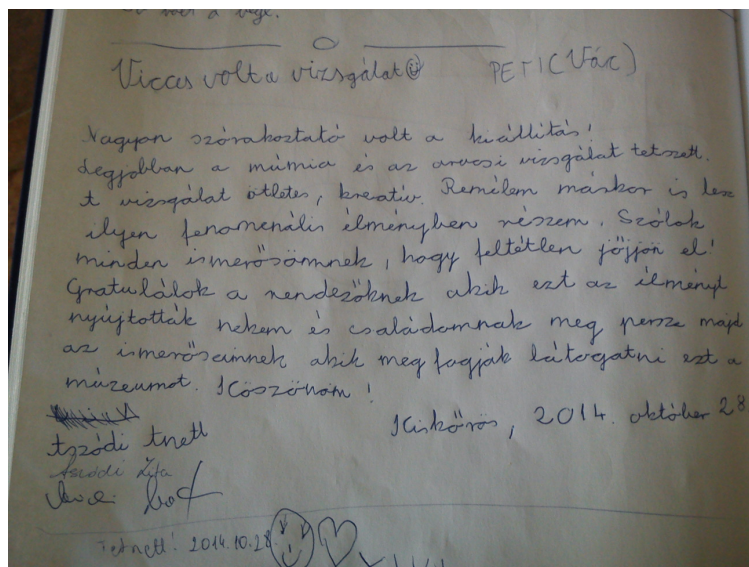 a vége.
Vicces volt a vizsgálat PETI (Vác)
Nagyon szórakoztató volt a kiállítás!
Legjobban a múmia és az orvosi vizsgálat tetszett.
A vizsgálat ötletes, kreatív. Remélem máskor is lesz
ilyen fenomenális élményben részem. Szólok
minden ismerősömnek, hogy feltétlen jöjjön el!
Gratulálok a rendezőknek akik ezt az élményt
nyújtották nekem és családomnak meg persze majd
az ismerőseimnek akik meg fogják látogatni ezt a
múzeumot. Köszönöm!
Kiskőrös, 2014. október 28
Aszódi Anett
Aszódi Zita
Tetszett! 2014.10.28.